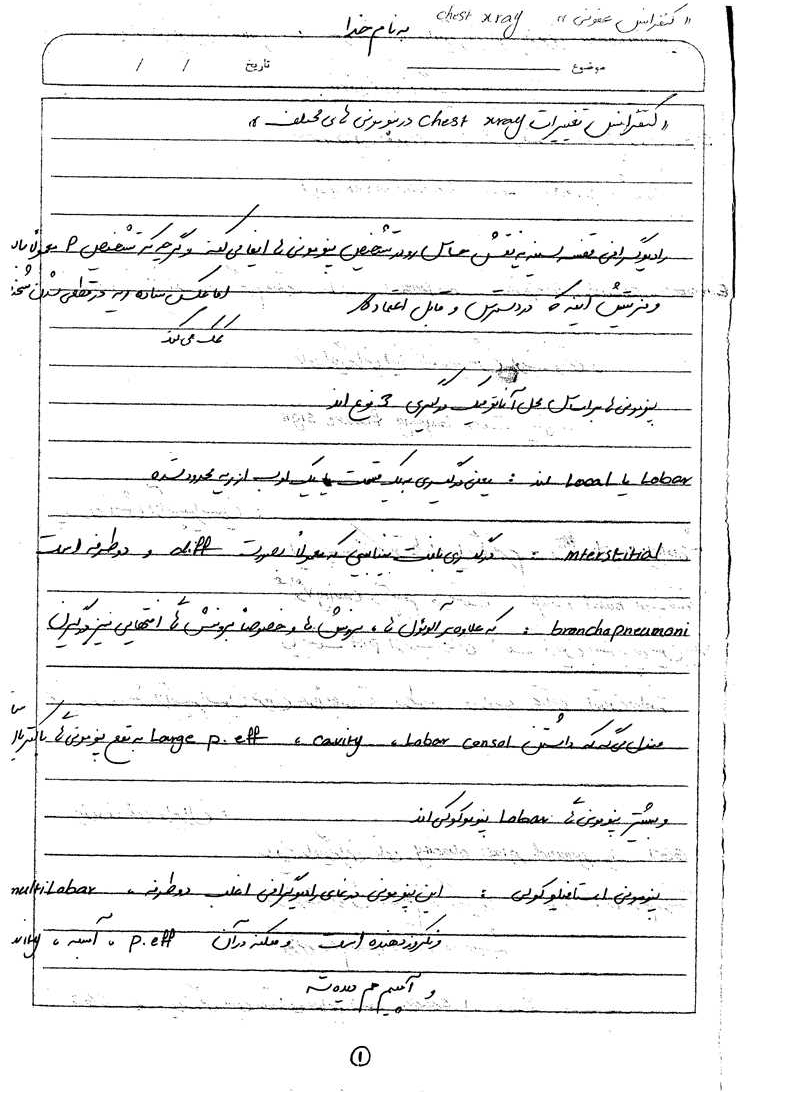 « کنفرانس عفونی » chest xray
به نام خدا
موضوع
تاریخ / /
« کنفرانس تغییرات chest xray در پنومونی های مختلف »
رادیوگرافی قفسه سینه یه نقش حساس روند تشخیص پنومونی ها ایفا می کنه و گرچه که تشخیص P معمولاً با
و مزیتش اینه که در دسترس و قابل اعتماد اما عکس ساده ریه در قطعی شدن
کمک می کند
پنومونی ها بر اساس محل آناتومیک درگیری 3 نوع اند
Lobar یا Local اند : یعنی درگیری به یک قسمت یا یک لوب از ریه محدود شده
interstitial : درگیری بافت بینابینی که معمولاً بصورت diff و دوطرفه است
branchapneumoni : که علاوه بر آلوئول ها ، برونش ها و خصوصاً برونش های انتهایی نیز درگیرن
مندل می گه که داشتن Lobar consol ، cavity ، Large p.eff به نفع پنومونی های باکتریال
و بیشتر پنومونی های Lobar پنوموکوکی اند
پنومونی استافیلوکوکی : این پنومونی در نمای رادیوگرافی اغلب دوطرفه ، multilobar
و نکروز دهنده است و ممکنه در آن p.eff ، آبسه ،
و آمپیم هم دیده شه
۱